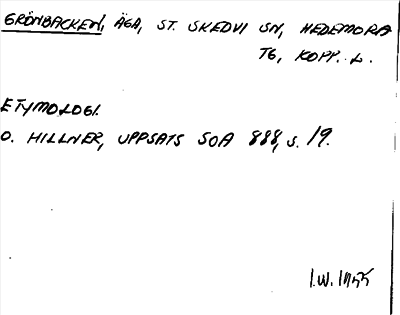 GRÖNBACKEN, ÄGA, ST. SKEDVI SN, HEDEMORA
TG, KOPP. L.
ETYMOLOGI.
O. HILLNER, UPPSATS SOA 888, S. 19.
I.W. 1955